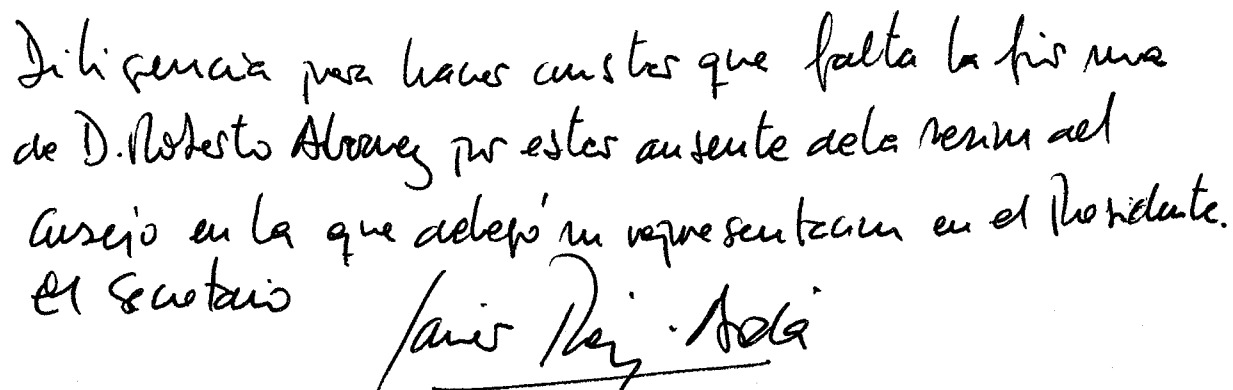 Diligencia para hacer constar que falta la firma
de D. Roberto Alvarez por estar ausente de la sesion del
Consejo en la que delegó su representacion en el Presidente.
El Secretario
Javier